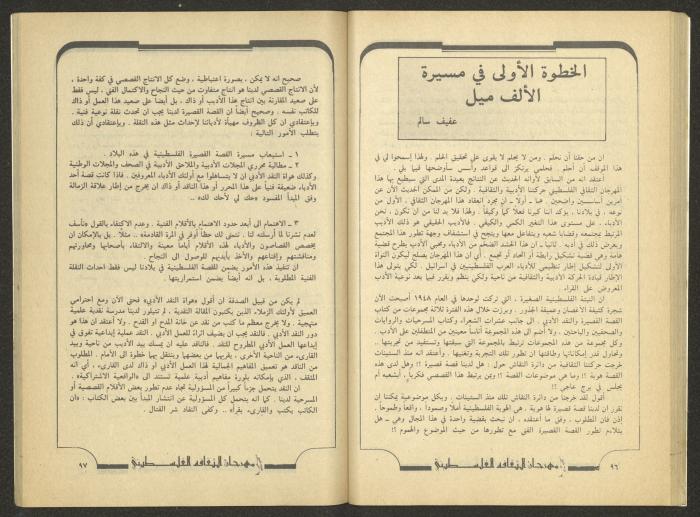 الخطوة الأولى في مسيرة
الألف ميل
عفيف سالم
ان من حقنا أن نحلم . ومن لا يحلم لا يقوى على تحقيق الحلم . ولهذا إسمحوا لي في
هذا الموقف أن أحلم . فحلمي يرتكز الى قواعد وأسس سأوضحها فيما يلي .
أعتقد انه من السابق لأوانه الحديث عن النتائج بعيدة المدى التي سيطبع بها هذا
المهرجان الثقافي الفلسطيني حركتنا الأدبية والثقافية . ولكن من الممكن الحديث الآن عن
أمرين أساسيين واضحين . هما ـ أولاً ـ ان مجرد انعقاد هذا المهرجان الثقافي ، الأول من
نوعه ، في بلادنا ، يؤكد اننا كبرنا فعلاً كماً وكيفاً . ولهذا فلا بد لنا من ان نكون ، نحن
الأدباء ، على مستوى هذا التغير الكمي والكيفي . فالأديب الحقيقي هو ذلك الأديب
المرتبط بمجتمعه وقضايا شعبه ويتفاعل معها وينجح في استشفاف وجهة تطور هذا المجتمع
ويعرض ذلك في أدبه . ثانياً ـ ان هذا الحشد الضخم من الأدباء ومحبي الأدب يطرح قضية
هامة وهي قضية تشكيل رابطة أو اتحاد أو تجمع . أي ان هذا المهرجان يصلح ليكون النواة
الأولى لتشكيل إطار تنظيمي للأدباء العرب الفلسطينيين في اسرائيل . لكي يتولى هذا
الإطار قيادة الحركة الأدبية والثقافية من ناحية ولكي ينظم ويقرر فيما بعد نوعية الأدب
المعروض على القراء .
ان النبتة الفلسطينية الصغيرة ، التي تركت لوحدها في العام ١٩٤٨ أصبحت الآن
شجرة كثيفة الأغصان وعميقة الجذور . وبرزت خلال هذه الفترة ثلاثة مجموعات من كتاب
القصة القصيرة والنقد الأدبي . الى جانب عشرات الشعراء وكتاب المسرحيات والروايات
والصحفيين والباحثين . ولا أضم الى هذه المجموعة أناساً معينين من المتطفلين على الأدب .
وكل مجموعة من هذه المجموعات ترتبط بالمجموعة التي سبقتها وتستفيد من تجربتها .
وتحاول قدر إمكاناتها وطاقتها ان تطور تلك التجربة وتغنيها . وأعتقد انه منذ الستينات
خرجت حركتنا الثقافية من دائرة النقاش حول : هل لدينا قصة قصيرة ؟! وهل لدى هذه
القصة هوية ؟! وما هي موضوعات القصة ؟! ومن يرتبط هذا القصصي فكرياً ، أبشعبه أم
يجلس في برج عاجي ؟!
أقول لقد خرجنا من دائرة النقاش تلك منذ الستينات . وبكل موضوعية يمكننا ان
نقرر ان لدينا قصة قصيرة لها هوية . هي الهوية الفلسطينية أملاً وصموداً . واقعاً وطموحاً .
إذن فان المطلوب . وفق ما أعتقده . ان نبحث بقضية واحدة في هذا المجال وهي ـ هل
يتلاءم تطور القصة القصيرة الفني مع تطورها من حيث الموضوع والهموم ؟!
مهرجان الثقافة الفلسطيني
٩٦
صحيح انه لا يمكن ، بصورة اعتباطية ، وضع كل الانتاج القصصي في كفة واحدة ،
لأن الانتاج القصصي لدينا هو انتاج متفاوت من حيث النجاح والاكتمال الفني ، ليس فقط
على صعيد المقارنة بين انتاج هذا الأديب أو ذاك . بل أيضاً على صعيد هذا العمل أو ذاك
للكاتب نفسه . وصحيح أيضاً ان القصة القصيرة لدينا يجب ان تحدث نقلة نوعية فنية .
وبإعتقادي ان كل الظروف مهيأة لأدبائنا لإحداث مثل هذه النقلة . وبإعتقادي أن ذلك
يتطلب الأمور التالية :
١ ـ استيعاب مسيرة القصة القصيرة الفلسطينية في هذه البلاد .
٢ ـ مطالبة محرري المجلات الأدبية والملاحق الأدبية في الصحف والمجلات الوطنية
وكذلك هواة النقد الأدبي ان لا يتساهلوا مع أولئك الأدباء المعروفين . فاذا كانت قصة أحد
الأدباء ضعيفة فنياً على هذا المحرر أو هذا الناقد أو ذاك ان يخرج من إطار علاقة الزمالة
وفق المبدأ المفسود «حك لي لأحك لك» ..
٣ ـ الاهتمام الى أبعد حدود الاهتمام بالأقلام الفنية . وعدم الاكتفاء بالقول «نأسف
لعدم نشرنا لما أرسلته لنا . نتمنى لك حظاً أوفر في المرة القادمة» .. مثلاً . بل بالإمكان ان
يخصص القصاصون والأدباء لهذه الأقلام أياما معينة والالتقاء بأصحابها ومحاورتهم
ومناقشتهم وإقناعهم والأخذ بأيديهم للوصول الى النجاح .
ان تنفيذ هذه الأمور يضمن للقصة الفلسطينية في بلادنا ليس فقط احداث النقلة
الفنية المطلوبة ، بل انه أيضاً يضمن استمراريتها .
لم يكن من قبيل الصدفة ان أقول «هواة النقد الأدبي» فحتى الآن ومع احترامي
العميق لأولئك الزملاء الذين يكتبون المقالة النقدية ، لم تتبلور لدينا مدرسة نقدية علمية
منهجية . ولا يخرج معظم ما كتب من نقد عن خانة المدح أو القدح . ولا أعتقد ان هذا هو
دور النقد الأدبي . فالنقد يجب ان يضيف اثراءً للعمل الأدبي . وعملية إبداعية تفوق في
إبداعها العمل الأدبي المطروح للنقد . فالناقد عليه ان يمسك بيد الأديب من ناحية وبيد
القارىء من الناحية الأخرى ، يقربهما من بعضهما وينتقل بهما خطوة الى الأمام . المطلوب
من الناقد هو تعميق المفاهيم الجمالية لهذا العمل الأدبي أو ذاك لدى القارىء ، أي انه
المثقف ، الذي بإمكانه بلورة مفاهيم أدبية علمية تستند الى «الواقعية الاشتراكية» .
ان النقد يتحمل جزءاً كبيراً من المسؤولية تجاه عدم تطور بعض الأقلام القصصية أو
المسرحية لدينا . كما انه يتحمل كل المسؤولية عن انتشار المبدأ بين بعض الكتاب : «ان
الكاتب يكتب والقارىء يقرأه ـ وكفى النقاد شر القتال .
مهرجان الثقافة الفلسطيني
٩٧